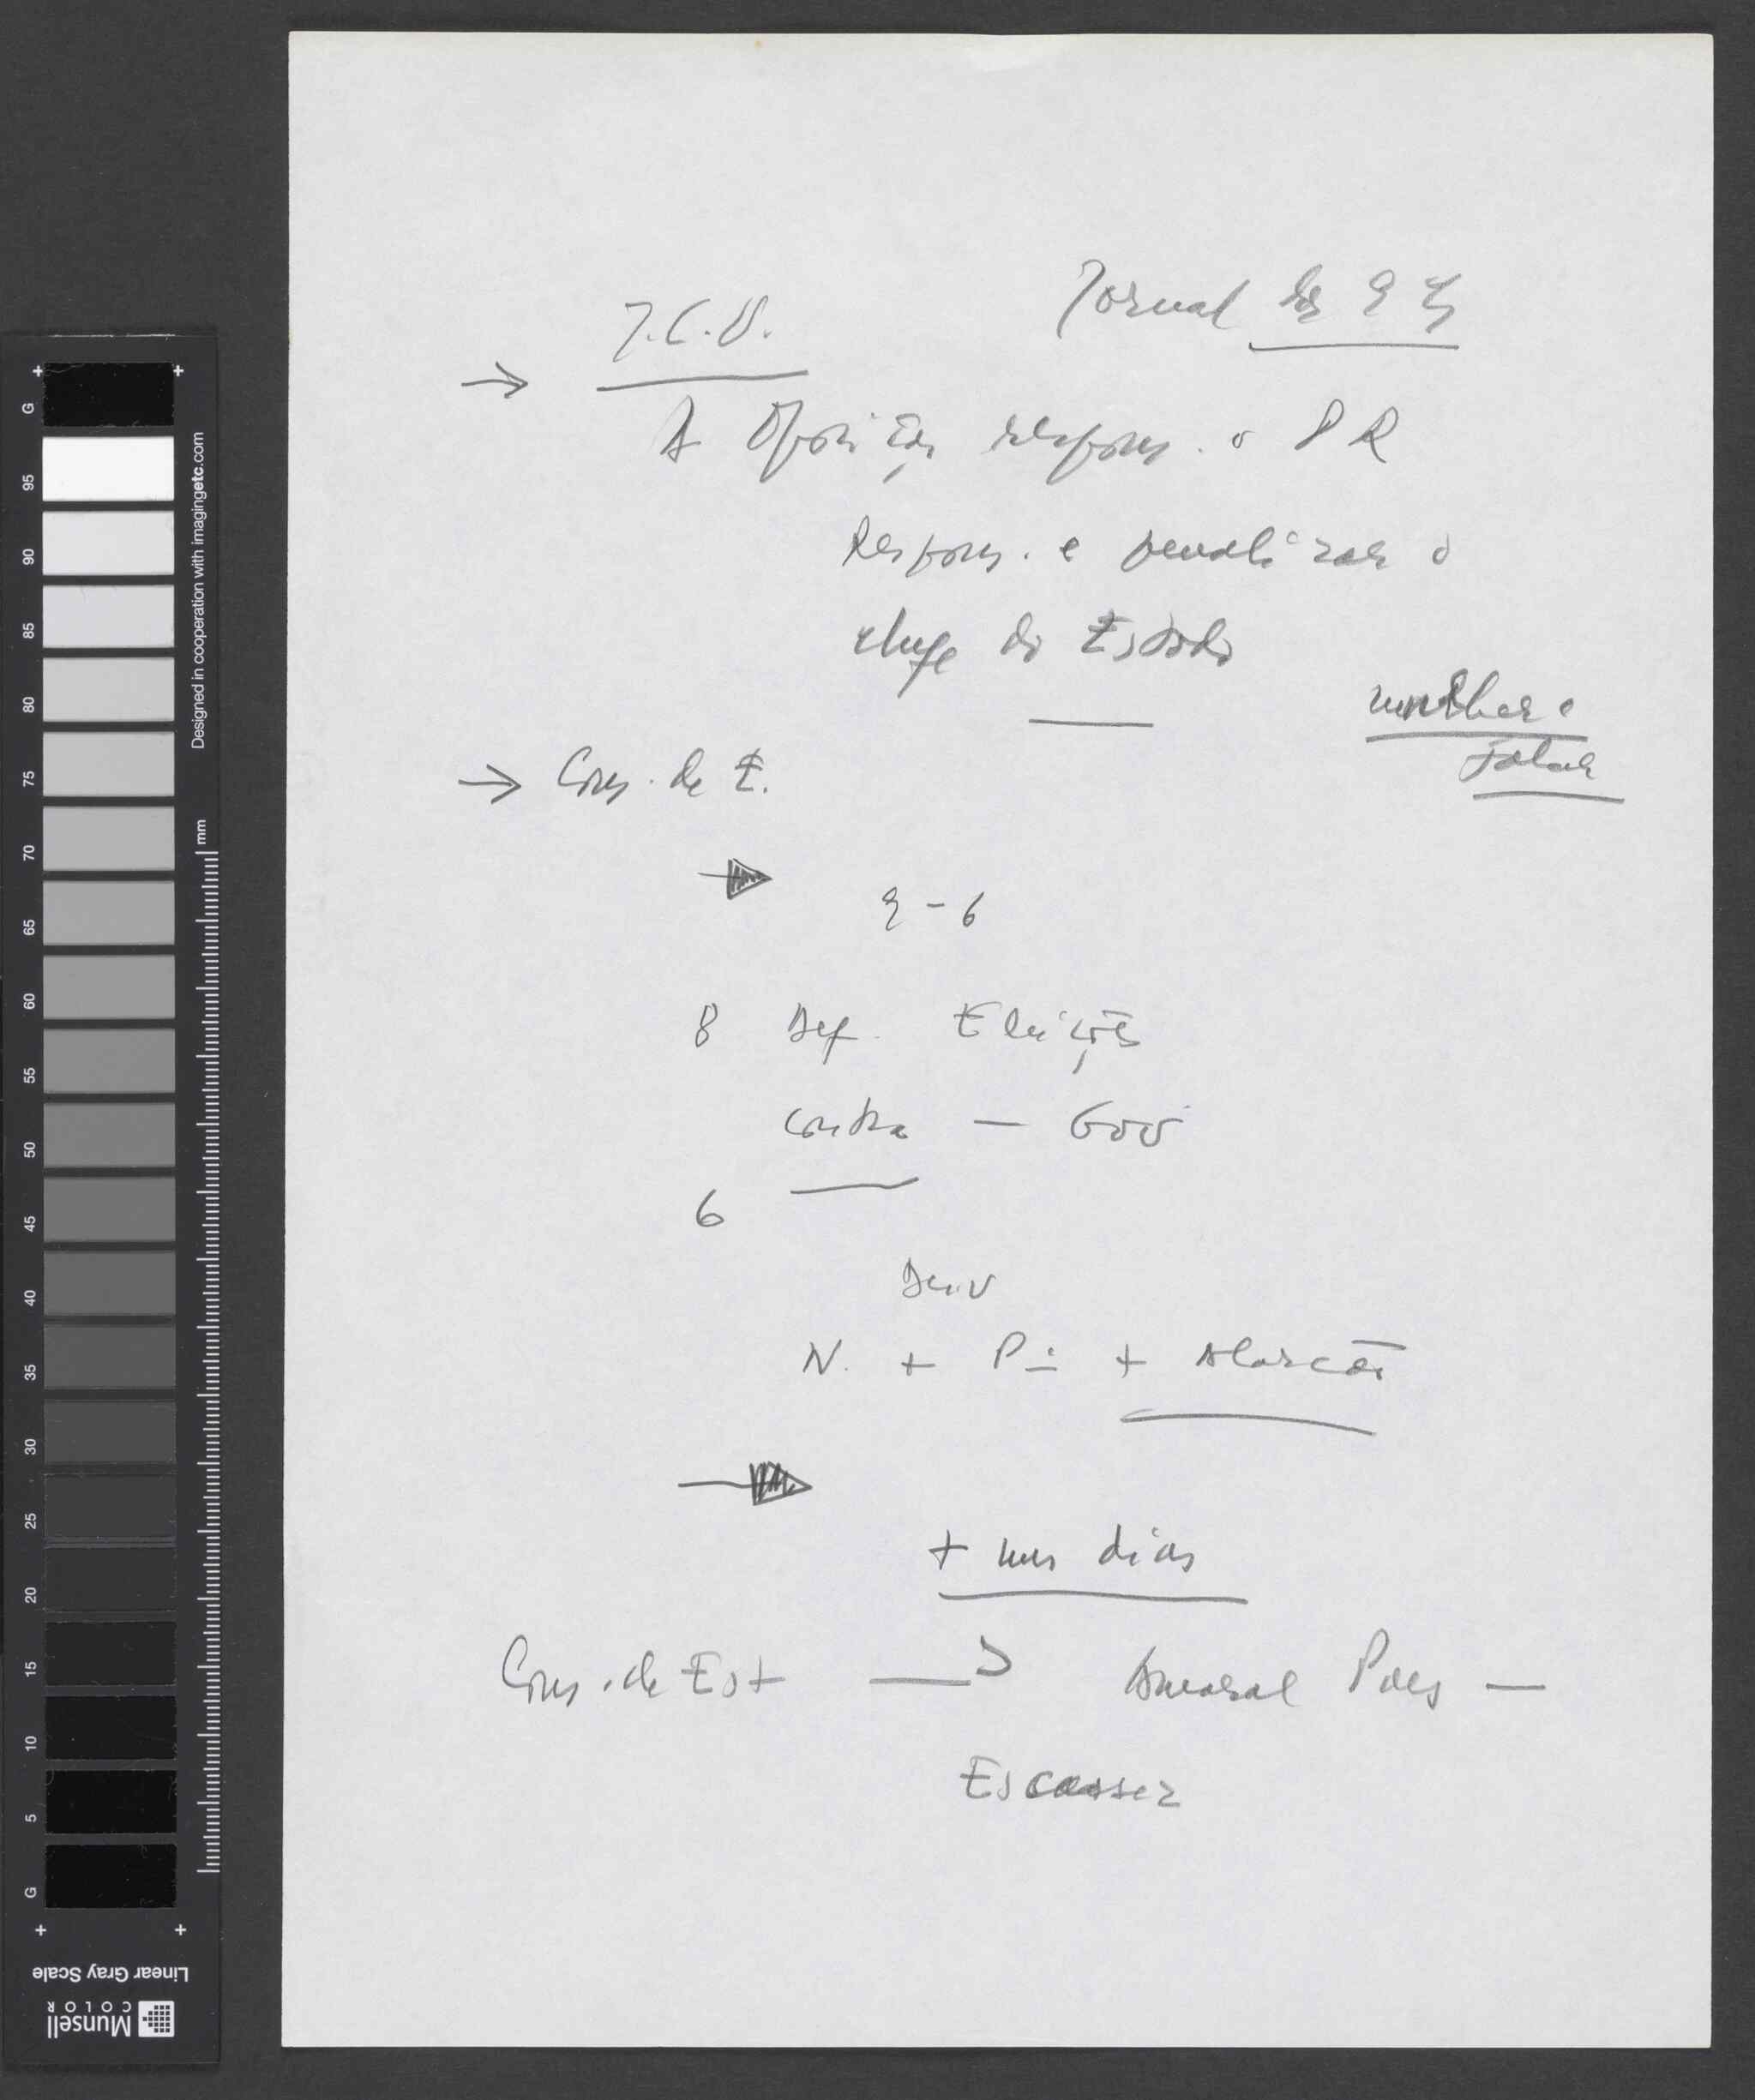 J.C.V. Jornal das 9 h
→ A Oposição respons. o PR
Respons. e penalizar o
chefe do Estado
→ Cons. de E.
9 - 6
8 Def. Eleições
contra — Gov
6
N. + Pi + Alarcão
+ uns dias
Cons. de Est → Amaral Pais —
Escassez
Designed in cooperation with imagingetc.com
mm
G
95
90
85
80
75
70
65
60
55
50
45
40
35
30
25
20
15
10
5
G
Linear Gray Scale
Munsell
COLOR